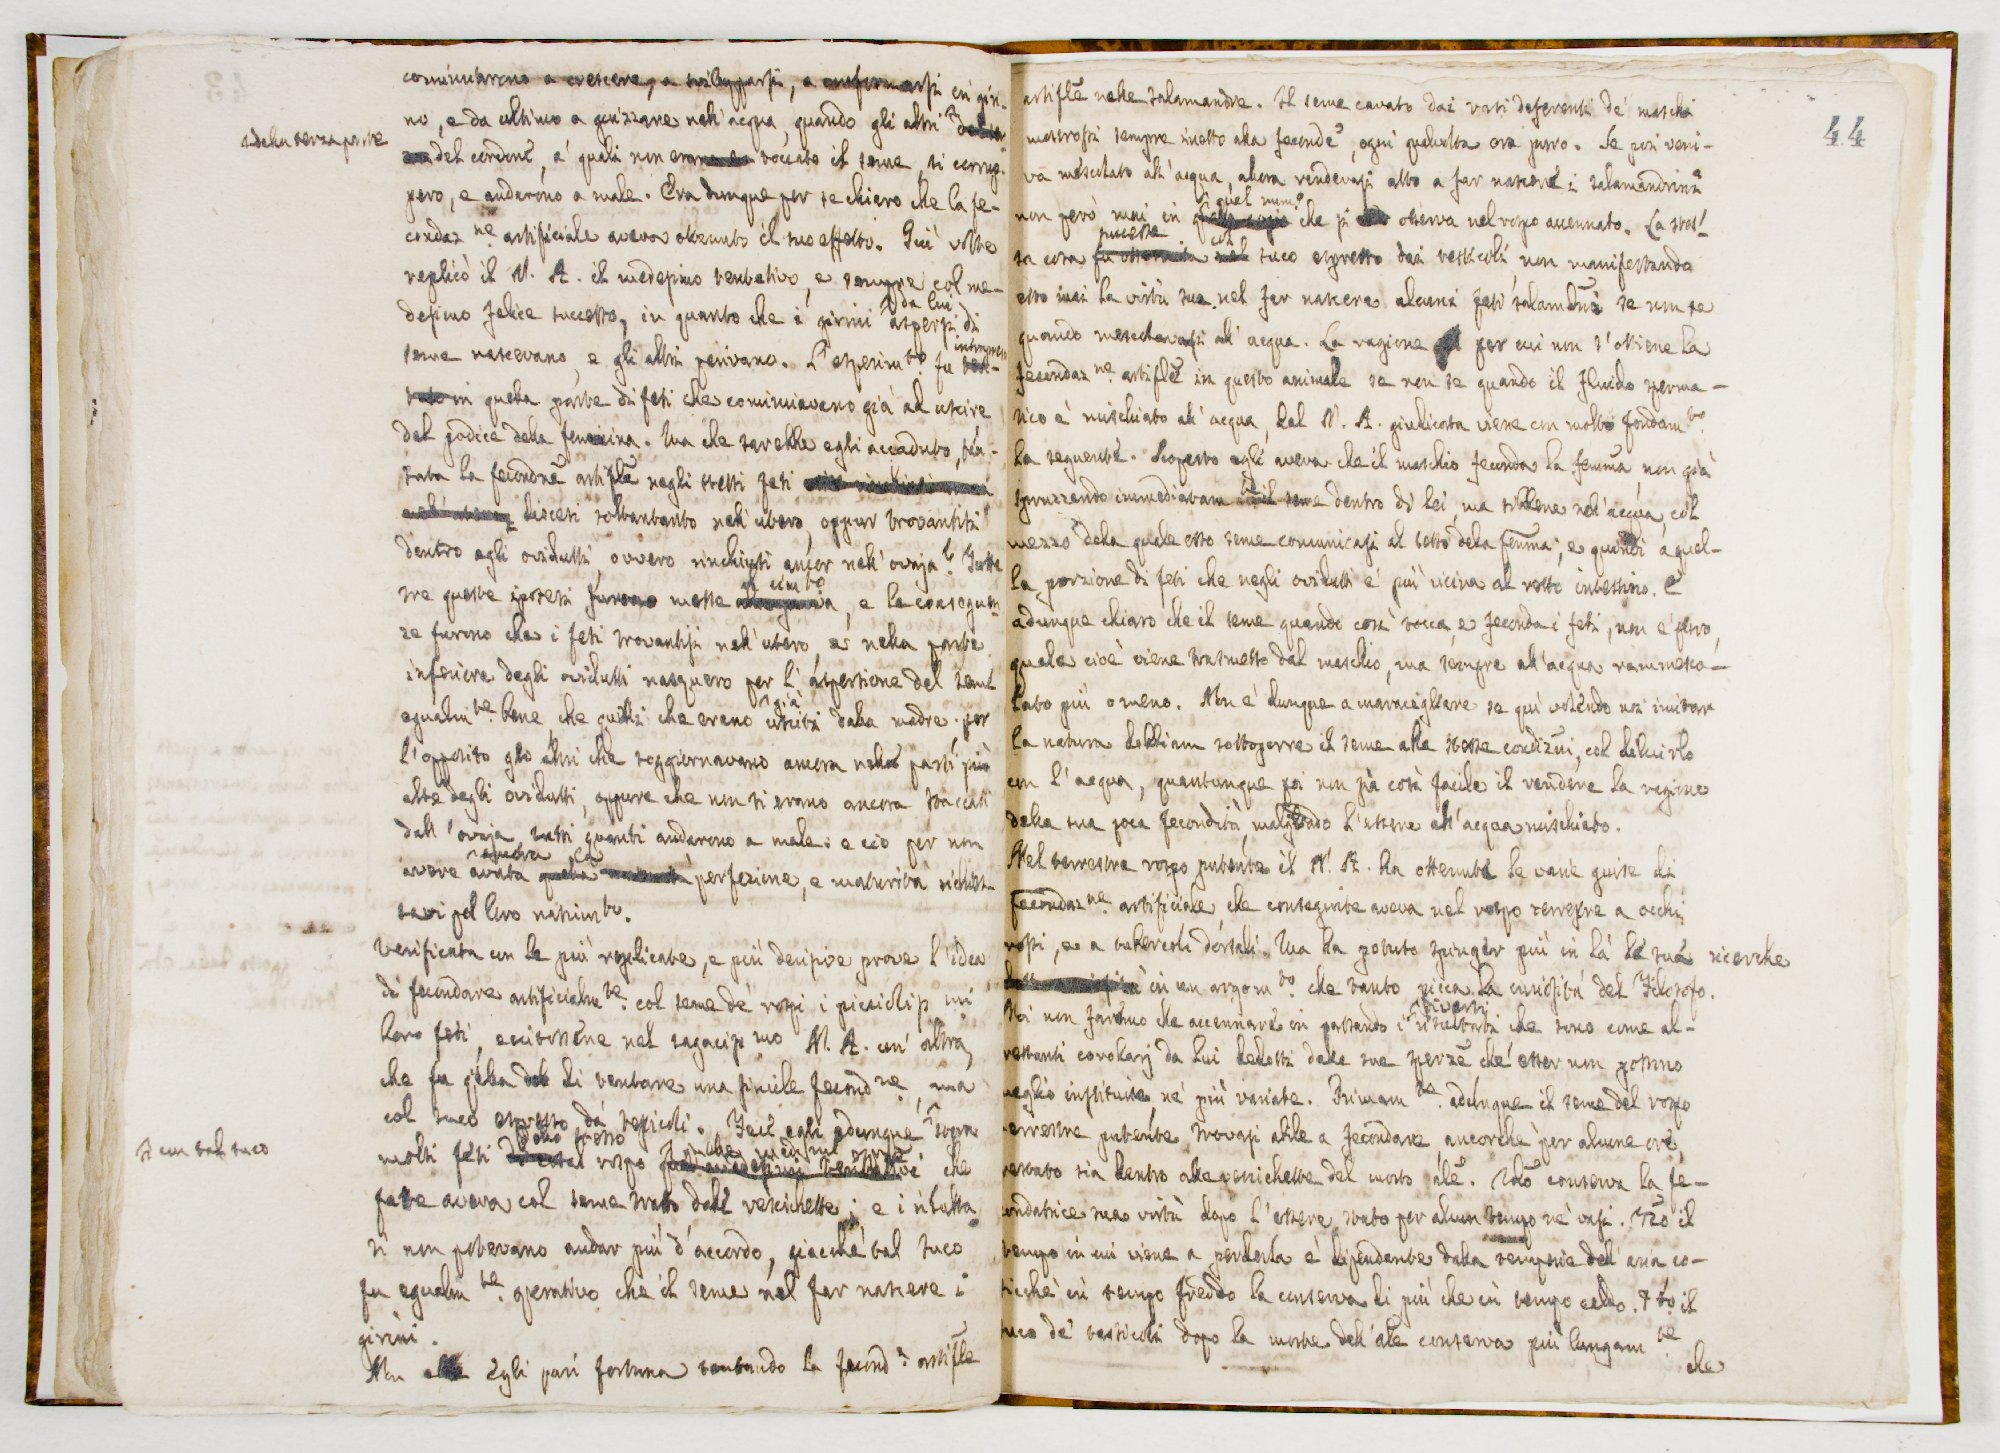 cominciarono a crescere, a svilupparsi, a conformarsi in giri-
no, e da ultimo a guizzare nell'acqua, quando gli altri
del cordone, a' quali non toccato il seme, si corrup-
pero, e andarono a male. Era dunque per se chiaro che la fe-
condaz.ne artificiale aveva ottenuto il suo effetto. Più volte
replicò il N. A. il medesimo tentativo, e sempre col me-
desimo felice successo, in quanto che i girini da lui aspersi di
seme nascevano, e gli altri perivano. L'esperim.to fu intrapreso
in quella parte di feti che cominciavano già ad uscire
dal podice della femmina. Ma che sarebbe egli accaduto, ten-
tata la fecondne artifle negli stessi feti
discesi soltantanto nell'utero, oppur trovantisi
dentro agli ovidutti, ovvero rinchiusi ancor nell'ovaja? Tutte
tre queste ipotesi furono messe al cim.to, e le conseguen-
ze furono che i feti trovantisi nell'utero, e nella parte
inferiore degli ovidutti nacquero per l'aspersione del seme
egualm.te bene che quelli che erano già usciti dalla madre. per
l'opposito gli altri che soggiornavano ancora nelle parti più
alte degli ovidutti, oppure che non si erano ancora staccati
dall'ovaja, tutti quanti andarono a male: e ciò per non
avere avuta ancora la perfezione, e maturità richiesta
pel loro nascim.to.
Verificata con le più replicate, e più decisive prove l'idea
di fecondare artificialm.te col seme de' rospi i picciolissimi
loro feti, eccitossene nel sagacissimo N. A. un'altra,
che fu quella di tentare una simile fecond.ne, ma
col suco espresso da' testicoli. Fecil egli adunque sopra
molti feti dello stesso rospo che
fatte aveva col seme tratto dalle vescichette; e i risultati
non potevano andar più d'accordo, giacchè tal suco
fu egualm.te operativo che il seme nel far nascere i
girini.
Non egli pari fortuna tentando la fecond.ne artifle
della terza parte
con tal suco
44
artifle nelle salamandre. Il seme cavato dai vasi deferenti de' maschi
mostrossi sempre inetto alla feconde, ogni qualvolta era puro. Se poi veni-
va mescolato all'acqua, allora rendevasi atto a far nascere i salamandrini
non però mai in quel num.o che si osserva nel rospo accennato. La stes-
sa cosa successe col suco espresso dai testicoli, non manifestando
esso mai la virtù sua nel far nascere alcuni feti salamdni se non se
quando mescolavasi all'acqua. La ragione per cui non s'ottiene la
fecondaz.ne artifle in questo animale se non se quando il fluido sperma-
tico è mischiato all'acqua, dal N. A. giudicata viene con molto fondam.to
la seguente. Scoperto egli aveva che il maschio feconda la femma, non già
spruzzando immediatam.te il seme dentro di lei, ma nell'acqua, col
mezzo della quale esso seme comunicasi al sesso della femma, e quindi a quel-
la porzione di feti che negli ovidutti è più vicina al retto intestino. È
adunque chiaro che il seme quando così tocca, e feconda i feti, non è puro,
quale cioè viene trasmesso dal maschio, ma sempre all'acqua rammesco-
lato più o meno. Non è dunque a maravigliare se qui volendo noi imitar
la natura dobbiam sottoporre il seme alle stesse condizni, col diluirlo
con l'acqua, quantunque poi non sia così facile il rendere la ragione
della sua poca fecondità, malgrado l'essere all'acqua mischiato.
Nel terrestre rospo putente il N. A. ha ottenute le varie guise di
fecondaz.ne artificiale che conseguite aveva nel rospo terrestre a occhi
rossi, e a tubercoli dorsali. Ma ha potuto spinger più in là le sue ricerche
in un argom.to che tanto picca la curiosità del Filosofo.
Noi non faremo che accennare in passando i diversi risultati che sono come al-
trettanti corollarj da lui dedotti dalle sue sperze che esser non possono
meglio instituite, nè più variate. Primam.te adunque il seme del rospo
terrestre putente, trovasi abile a fecondare, ancorchè per alcune ore
restato sia dentro alle vescichette del morto ale. 2do conserva la fe-
condatrice sua virtù dopo l'essere stato per alcun tempo ne' vasi. 3zo il
tempo in cui viene a perderla è dipendente dalla temperie dell'aria co-
sicchè in tempo freddo la conserva di più che in tempo caldo. 4to il
suco de' testicoli dopo la morte dell'ale conserva più lungam.te
che